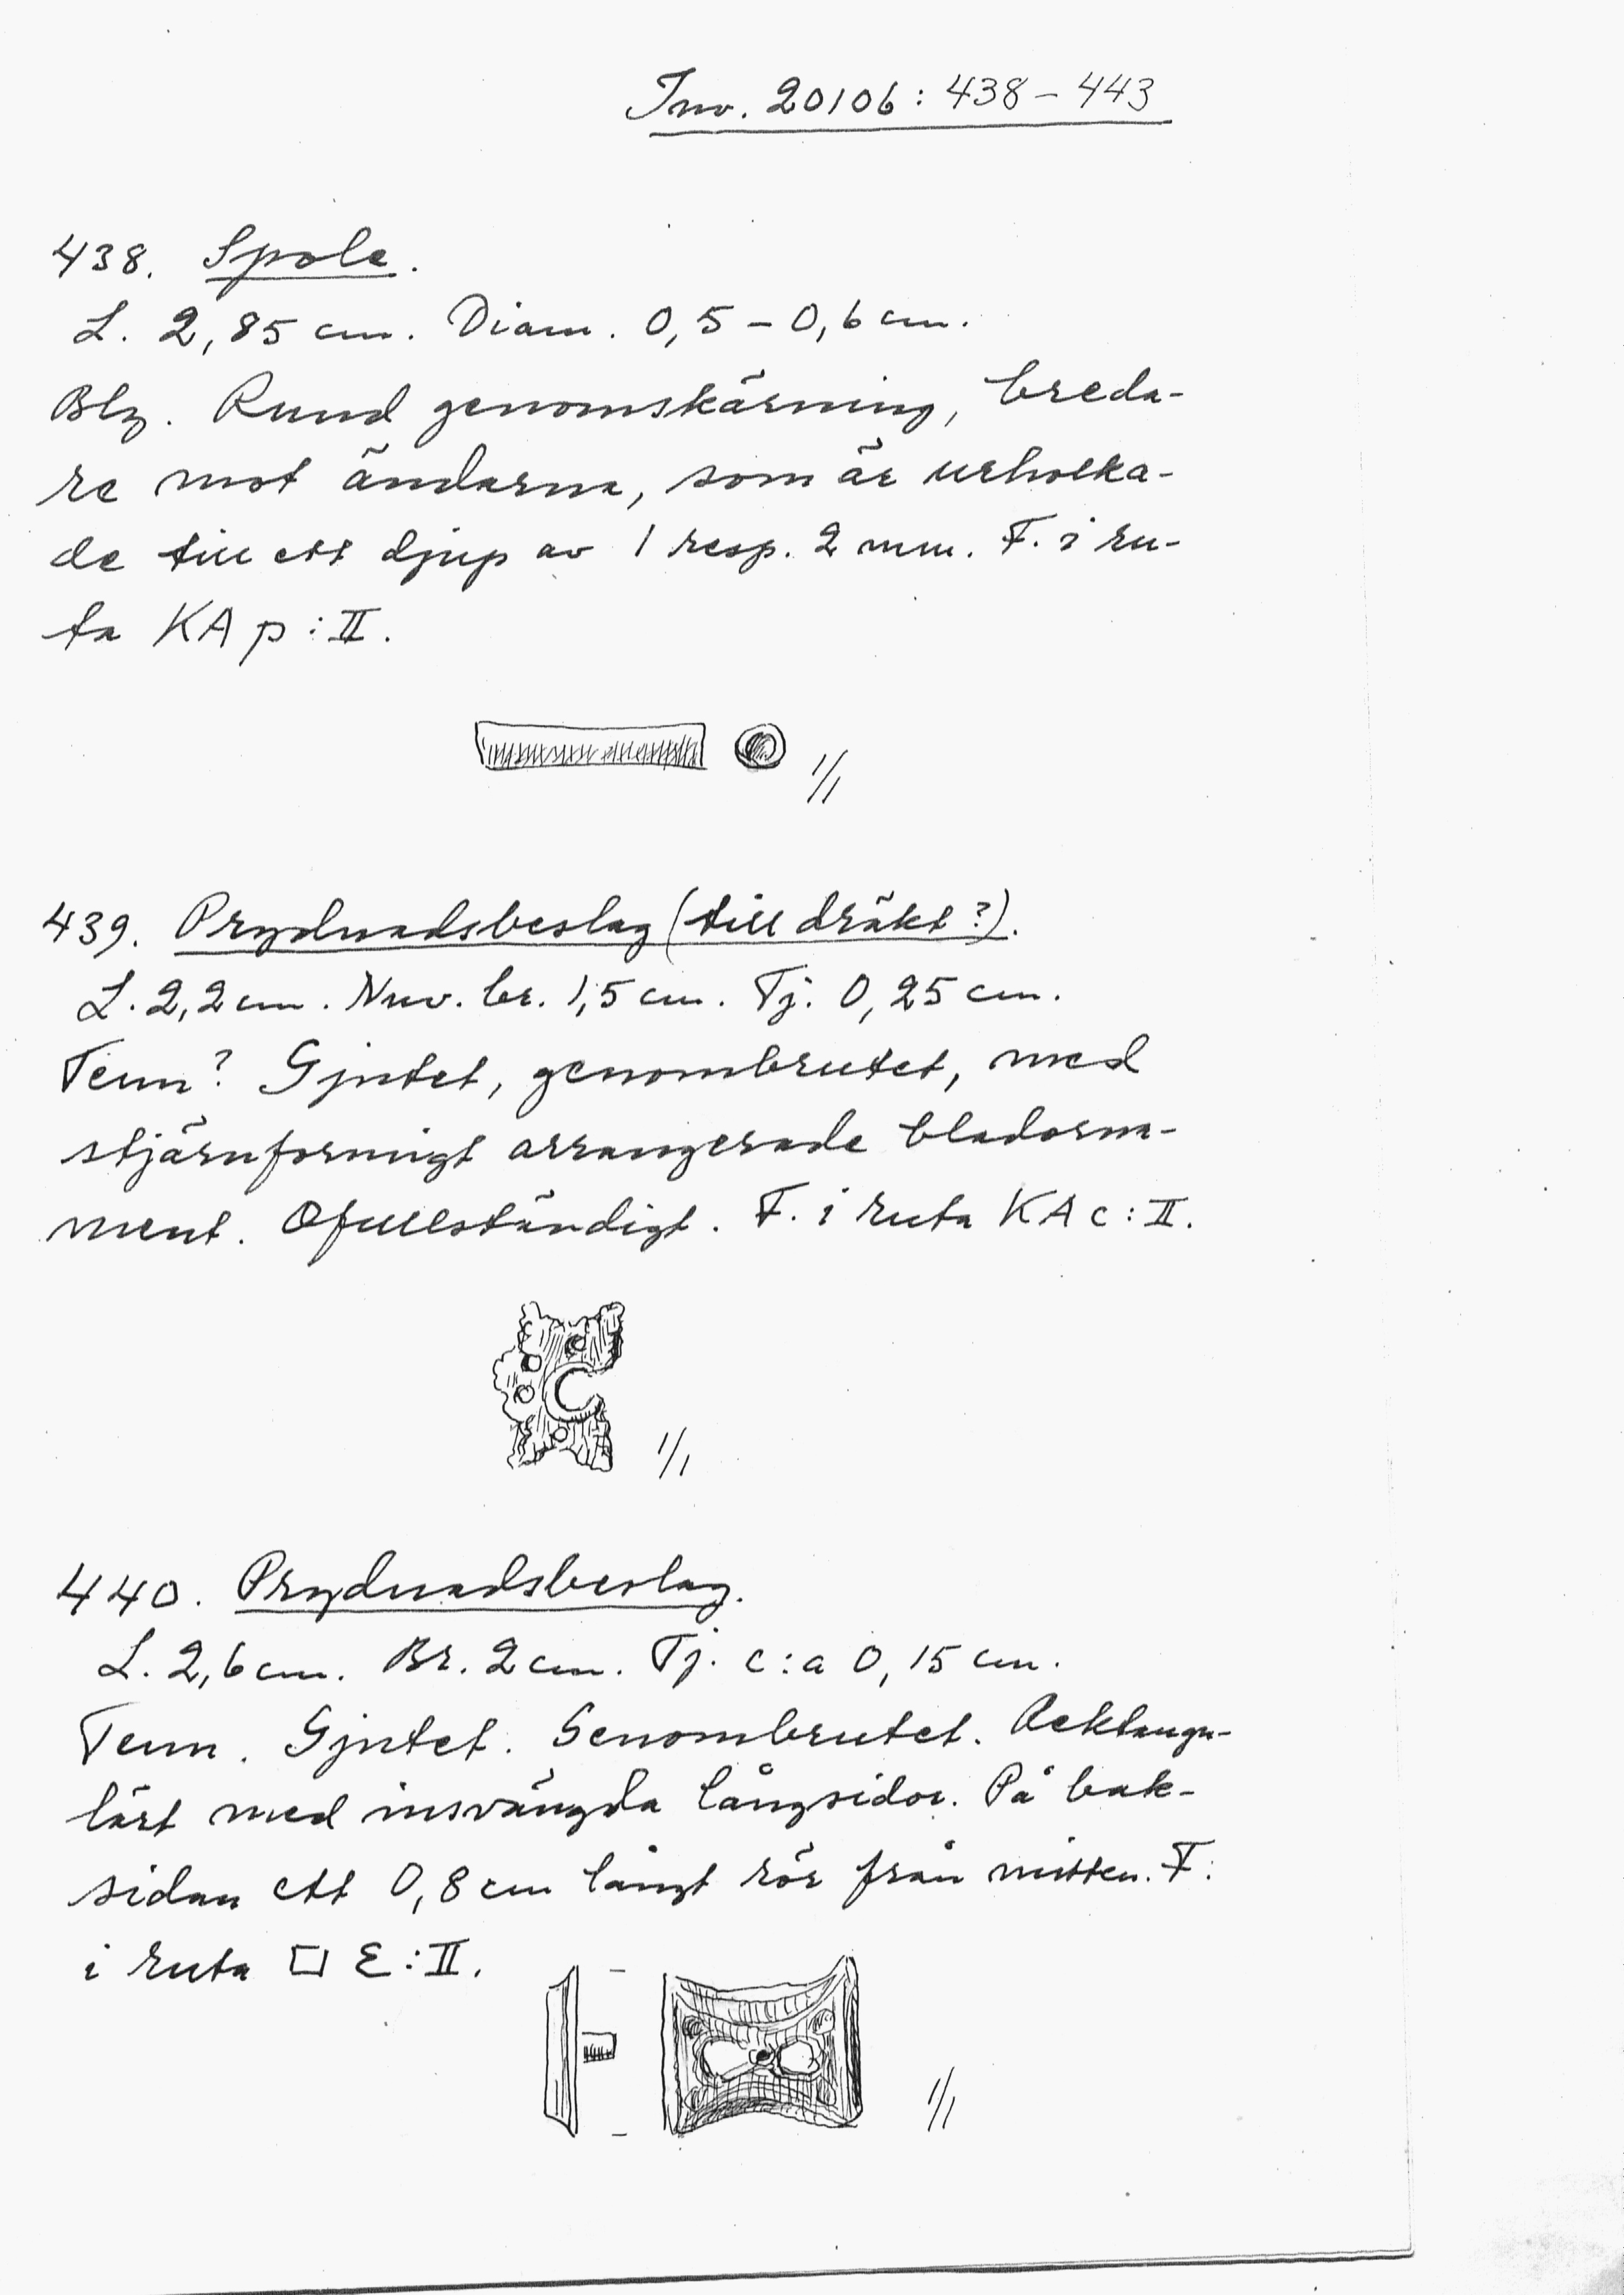 Inv. 20106: 438-443
438. Spole.
L. 2,85 cm. Diam. 0,5-0,6 cm.
Bly. Rund genomskärning, breda-
re mot ändarna, som är urholka-
de till ett djup av 1 resp. 2 mm. F. i ru-
ta KA p:II.
1/1
439. Prydnadsbeslag (till dräkt?).
L. 2,2 cm. Nuv. br. 1,5 cm. Tj. 0,25 cm.
Tenn? Gjutet, genombrutet, med
stjärnformigt arrangerade bladorna-
ment. Ofullständigt. F. i ruta KA c:II.
1/1
440. Prydnadsbeslag.
L. 2,6 cm. Br. 2 cm. Tj. c:a 0,15 cm.
Tenn. Gjutet. Genombrutet. Rektangu-
lärt med insvängda långsidor. På bak-
sidan ett 0,8 cm långt rör från mitten. F.
i ruta □ Ɛ:II.
1/1